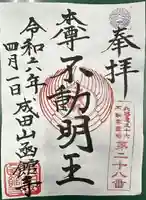 奉拝
第二十八番
本尊不動明王
令和六年
四月一日
成田山函館寺